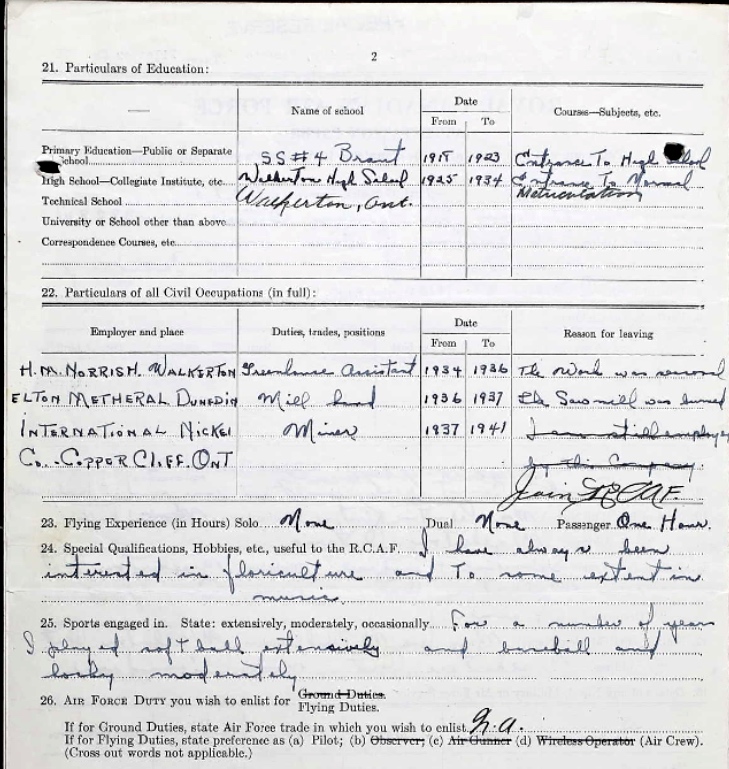 2
21. Particulars of Education:
Name of school
Date
From To
Courses—Subjects, etc.
Primary Education—Public or Separate School SS#4 Brant 1923 Entrance To High School
High School—Collegiate Institute, etc. Walkerton High School 1925 1934 Entrance To Normal
Technical School Walkerton, Ont. Matriculation
University or School other than above
Correspondence Courses, etc.
22. Particulars of all Civil Occupations (in full):
Employer and place
Duties, trades, positions
Date
From To
Reason for leaving
H. M. NORRISH. WALKERTON Greenhouse Assistant 1934 1936 The work was seasonal
ELTON METHERAL DUNEDIN Mill hand 1936 1937 The Sawmill was burned
INTERNATIONAL NICKEL Miner 1937 1941 I am still employe
CO. COPPOR CLIFF. ONT by this Company.
Join RCAF.
23. Flying Experience (in Hours) Solo None Dual None Passenger One Hour.
24. Special Qualifications, Hobbies, etc., useful to the R.C.A.F. I have always been
interested in floriculture and To some extent in
music.
25. Sports engaged in. State: extensively, moderately, occasionally For a number of years
I played softball extensively and baseball and
hockey moderately
26. AIR FORCE DUTY you wish to enlist for Ground Duties.
Flying Duties.
If for Ground Duties, state Air Force trade in which you wish to enlist. N.A.
If for Flying Duties, state preference as (a) Pilot; (b) Observer; (c) Air Gunner (d) Wireless Operator (Air Crew).
(Cross out words not applicable.)